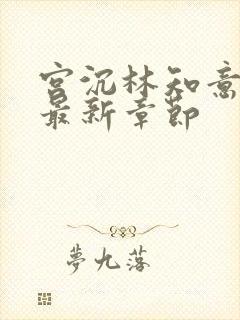 宫沉林知意
最新章节
夢九落